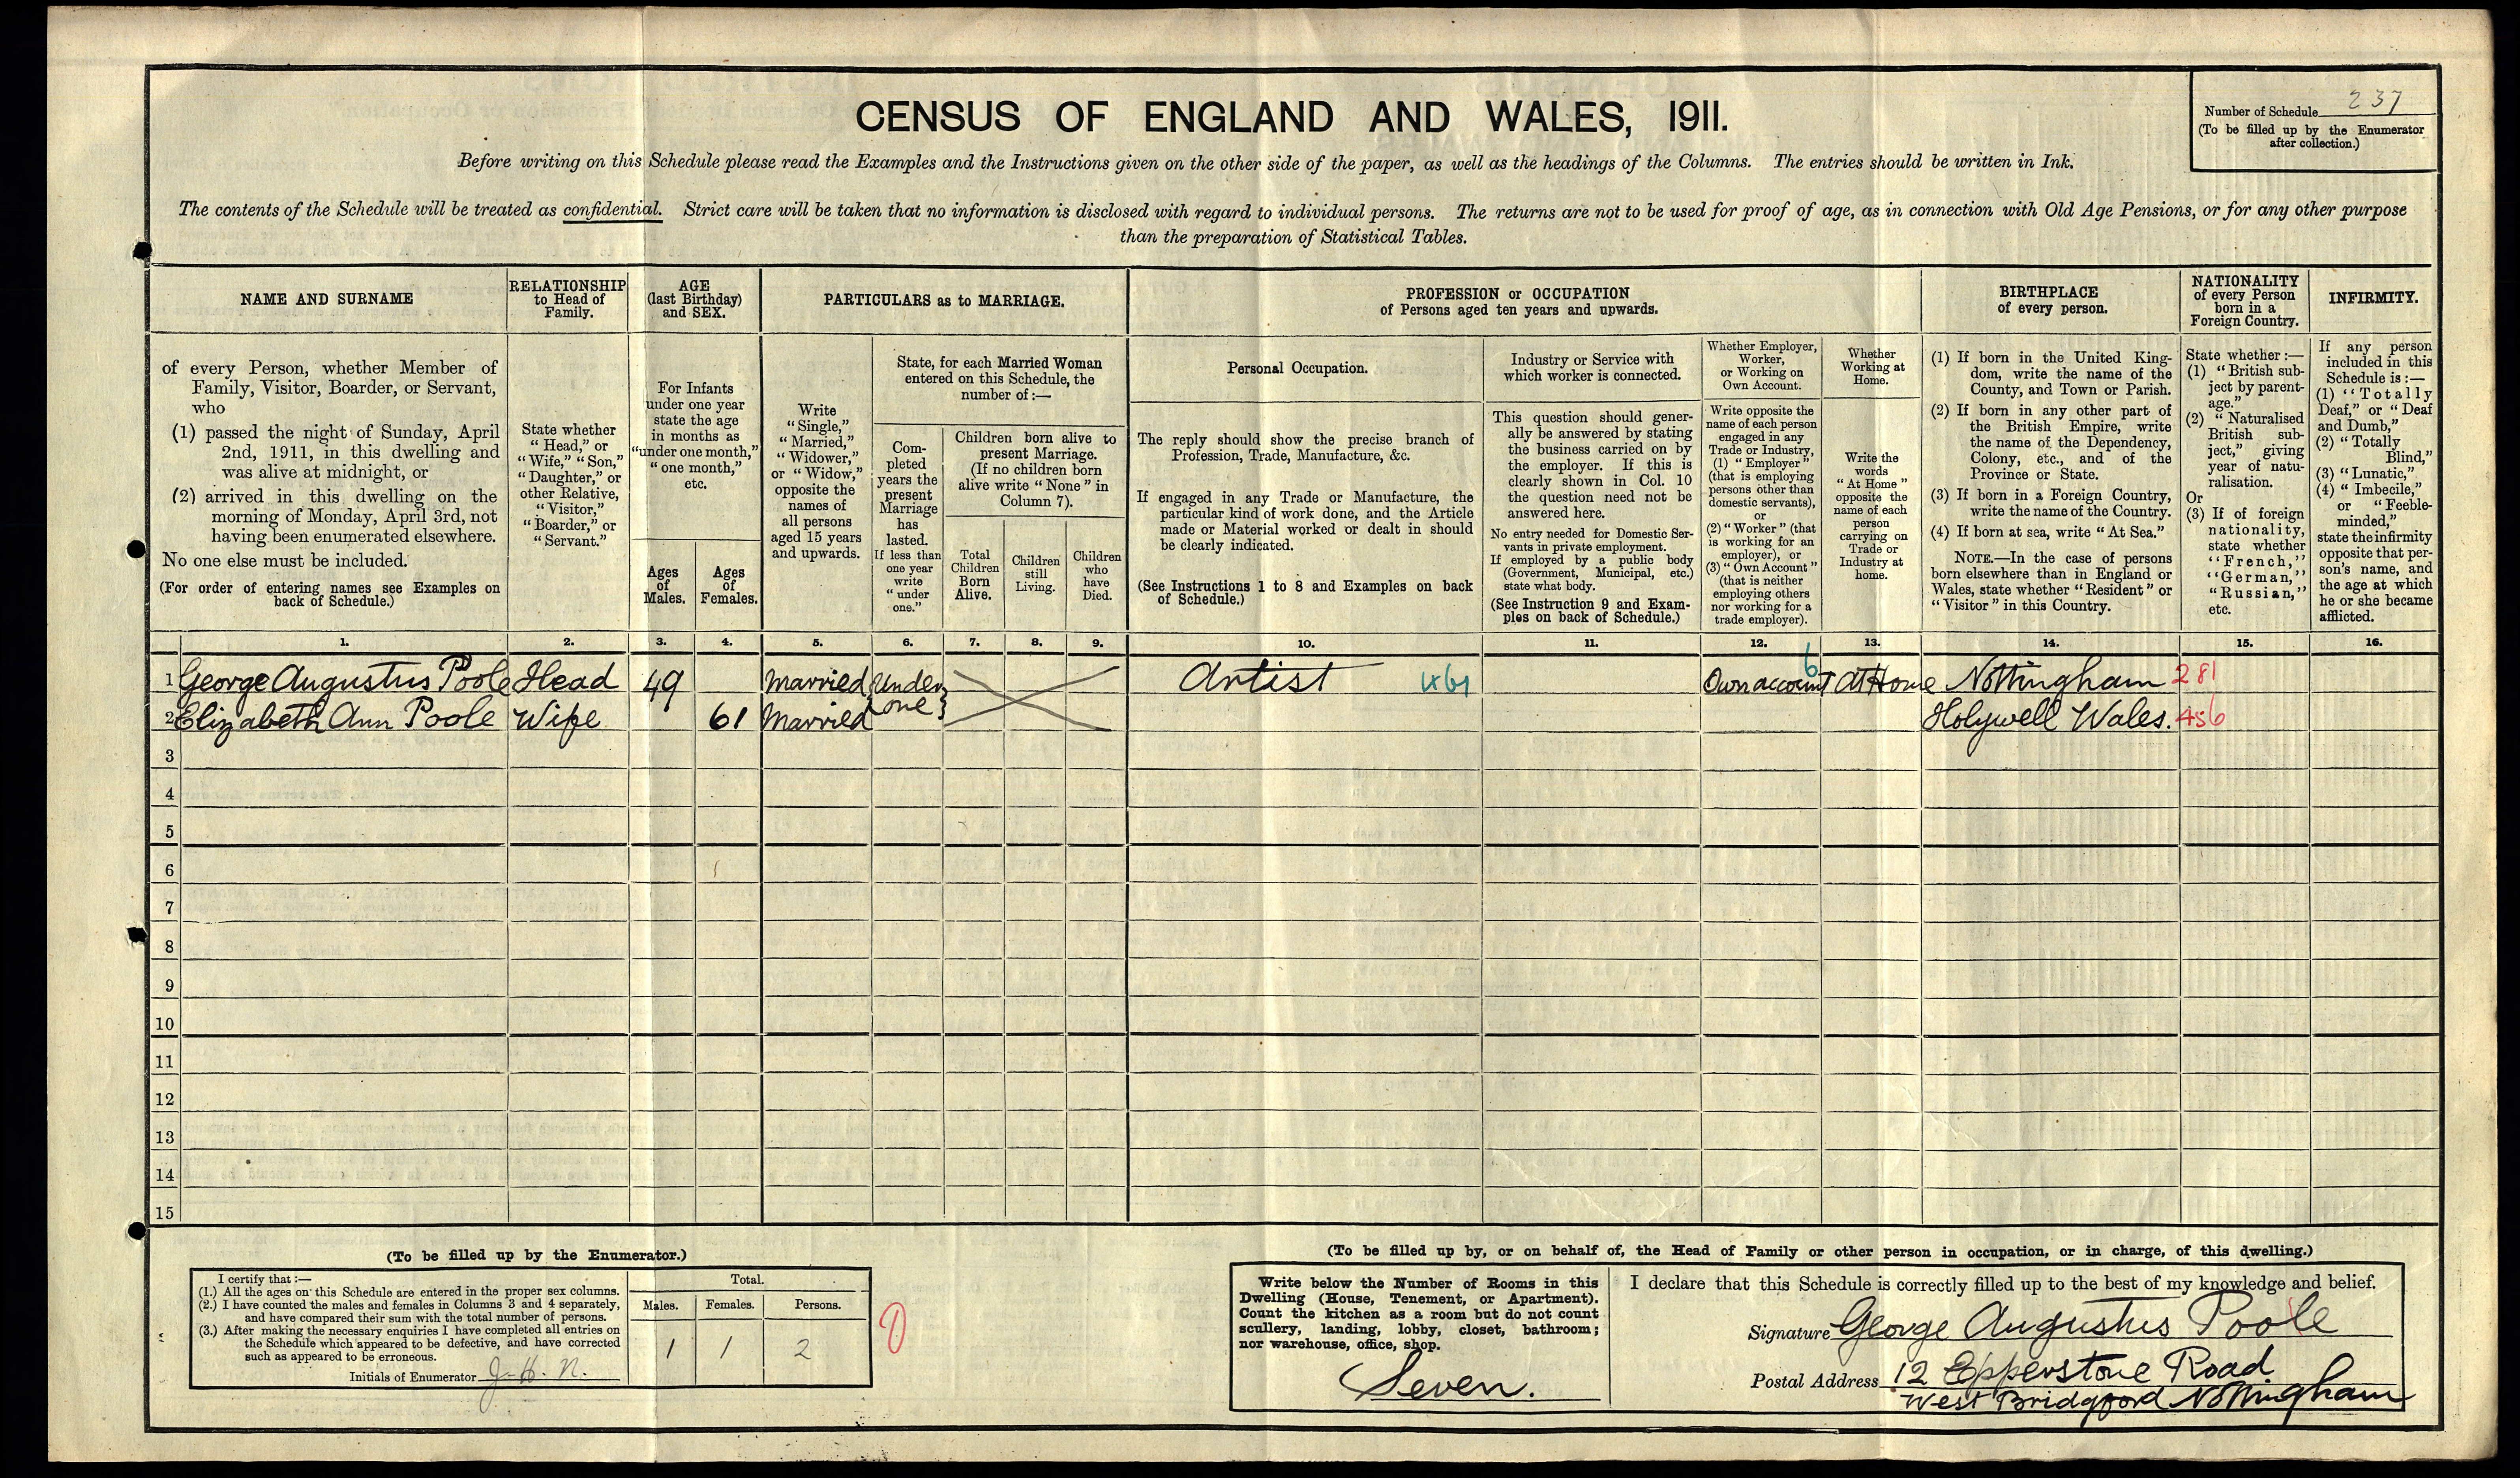 CENSUS OF ENGLAND AND WALES, 1911.
Number of Schedule 237
(To be filled up by the Enumerator
after collection.)
Before writing on this Schedule please read the Examples and the Instructions given on the other side of the paper, as well as the headings of the Columns. The entries should be written in Ink.
The contents of the Schedule will be treated as confidential. Strict care will be taken that no information is disclosed with regard to individual persons. The returns are not to be used for proof of age, as in connection with Old Age Pensions, or for any other purpose
than the preparation of Statistical Tables.
NAME AND SURNAME
of every Person, whether Member of
Family, Visitor, Boarder, or Servant,
who
(1) passed the night of Sunday, April
2nd, 1911, in this dwelling and
was alive at midnight, or
(2) arrived in this dwelling on the
morning of Monday, April 3rd, not
having been enumerated elsewhere.
No one else must be included.
(For order of entering names see Examples on
back of Schedule.)
RELATIONSHIP
to Head of
Family.
State whether
"Head," or
"Wife," "Son,"
"Daughter," or
other Relative,
"Visitor,"
"Boarder," or
"Servant."
AGE
(last Birthday)
and SEX.
For Infants
under one year
state the age
in months as
"under one month,"
"one month,"
etc.
Ages
of
Males.
Ages
of
Females.
PARTICULARS as to MARRIAGE.
Write
"Single,"
"Married,"
"Widower,"
or "Widow,"
opposite the
names of
all persons
aged 15 years
and upwards.
State, for each Married Woman
entered on this Schedule, the
number of:—
Com-
pleted
years the
present
Marriage
has
lasted.
If less than
one year
write
"under
one."
Children born alive to
present Marriage.
(If no children born
alive write "None" in
Column 7).
Total
Children
Born
Alive.
Children
still
Living.
Children
who
have
Died.
PROFESSION or OCCUPATION
of Persons aged ten years and upwards.
Personal Occupation.
The reply should show the precise branch of
Profession, Trade, Manufacture, &c.
If engaged in any Trade or Manufacture, the
particular kind of work done, and the Article
made or Material worked or dealt in should
be clearly indicated.
(See Instructions 1 to 8 and Examples on back
of Schedule.)
Industry or Service with
which worker is connected.
This question should gener-
ally be answered by stating
the business carried on by
the employer. If this is
clearly shown in Col. 10
the question need not be
answered here.
No entry needed for Domestic Ser-
vants in private employment.
If employed by a public body
(Government, Municipal, etc.)
state what body.
(See Instruction 9 and Exam-
ples on back of Schedule.)
Whether Employer,
Worker,
or Working on
Own Account.
Write opposite the
name of each person
engaged in any
Trade or Industry,
(1) "Employer"
(that is employing
persons other than
domestic servants),
or
(2) "Worker" (that
is working for an
employer), or
(3) "Own Account"
(that is neither
employing others
nor working for a
trade employer).
Whether
Working at
Home.
Write the
words
"At Home"
opposite the
name of each
person
carrying on
Trade or
Industry at
home.
BIRTHPLACE
of every person.
(1) If born in the United King-
dom, write the name of the
County, and Town or Parish.
(2) If born in any other part of
the British Empire, write
the name of the Dependency,
Colony, etc., and of the
Province or State.
(3) If born in a Foreign Country,
write the name of the Country.
(4) If born at sea, write "At Sea."
NOTE.—In the case of persons
born elsewhere than in England or
Wales, state whether "Resident" or
"Visitor" in this Country.
NATIONALITY
of every Person
born in a
Foreign Country.
State whether:—
(1) "British sub-
ject by parent-
age."
(2) "Naturalised
British sub-
ject," giving
year of natu-
ralisation.
Or
(3) If of foreign
nationality,
state whether
"French,"
"German,"
"Russian,"
etc.
INFIRMITY.
If any person
included in this
Schedule is:—
(1) "Totally
Deaf," or "Deaf
and Dumb,"
(2) "Totally
Blind,"
(3) "Lunatic,"
(4) "Imbecile,"
or "Feeble-
minded,"
state the infirmity
opposite that per-
son's name, and
the age at which
he or she became
afflicted.
1. 2. 3. 4. 5. 6. 7. 8. 9. 10. 11. 12. 13. 14. 15. 16.
1 George Augustus Poole Head 49 Married Under Artist 461 Own account 6 At Home Nottingham 281
2 Elizabeth Ann Poole Wife 61 Married one Holywell Wales. 456
3
4
5
6
7
8
9
10
11
12
13
14
15
(To be filled up by the Enumerator.)
I certify that:—
(1.) All the ages on this Schedule are entered in the proper sex columns.
(2.) I have counted the males and females in Columns 3 and 4 separately,
and have compared their sum with the total number of persons.
(3.) After making the necessary enquiries I have completed all entries on
the Schedule which appeared to be defective, and have corrected
such as appeared to be erroneous.
Initials of Enumerator J. H. N.
Total.
Males. Females. Persons.
1 1 2
0
(To be filled up by, or on behalf of, the Head of Family or other person in occupation, or in charge, of this dwelling.)
Write below the Number of Rooms in this
Dwelling (House, Tenement, or Apartment).
Count the kitchen as a room but do not count
scullery, landing, lobby, closet, bathroom;
nor warehouse, office, shop.
Seven.
I declare that this Schedule is correctly filled up to the best of my knowledge and belief.
Signature George Augustus Poole
Postal Address 12 Epperstone Road
West Bridgford Nottingham